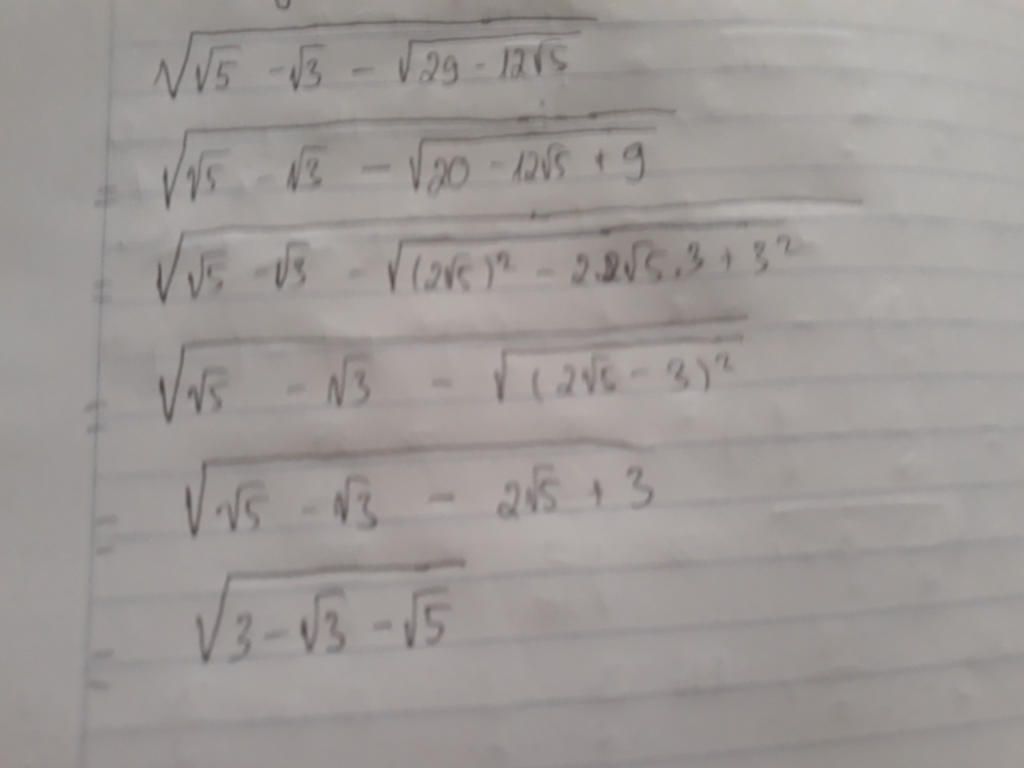 √(√5 - √3 - √(29 - 12√5))
= √(√5 - √3 - √(20 - 12√5 + 9))
= √(√5 - √3 - √((2√5)² - 2.2√5.3 + 3²))
= √(√5 - √3 - √((2√5 - 3)²))
= √(√5 - √3 - 2√5 + 3)
= √(3 - √3 - √5)